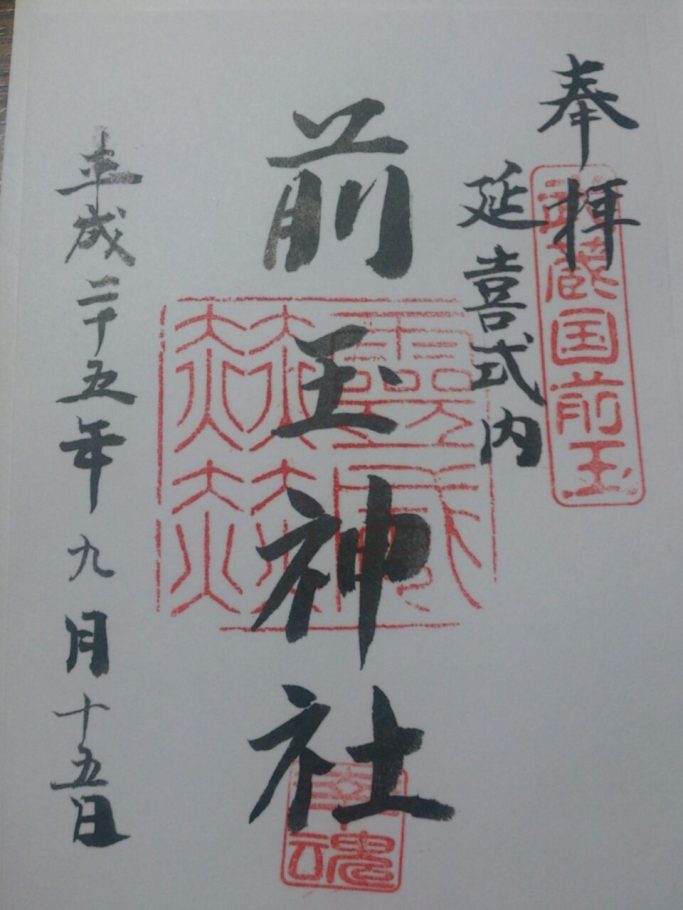 奉拝
武蔵国前玉
延喜式内
前玉神社
靈威
赫赫
幸魂
平成二十五年九月十五日